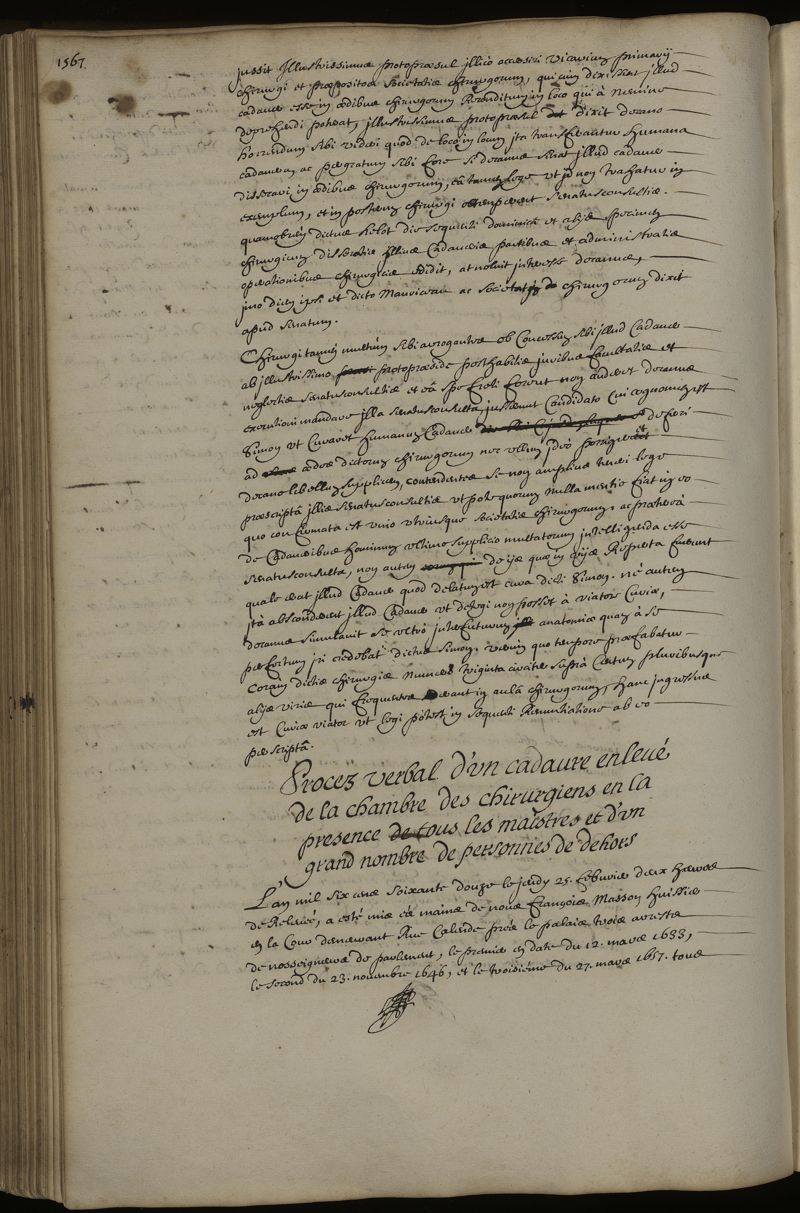 1567.
jussit Illustrissimus protopræsul illico accersiri vicarium primarij
chirurgi et præpositos societatis chirurgorum, qui cùm dixissent illud
cadaver esse in ædibus chirurgorum reconditum in loco qui à nemine
deprehendi poterat, illustrissimus protopræsul dixit decano
horrendum sibi videri quod de loco in locum ita transferantur humana
cadavera, ac pergratum sibi fore si decanus sinat illud cadaver
dissecari in ædibus chirurgorum, eâ tamen lege vt id non trahatur in
exemplum, et in posterum chirurgi obtemperent senatusconsultis.
quamobrem dictus Helot die sequenti dominicâ et alijs
chirurgicis dissectis illius cadaveris partibus et administratis
operationibus chirurgicis edidit, at noluit interesse decanus,
imo diem ipsi et dicto Mauriceau ac societati chirurgorum dixit
apud senatum.
Chirurgi tamen multùm sibi arrogantes ob concessum sibi illud cadaver
ab illustrissimo protopræside posthabitis juribus facultatis et
neglectis senatusconsultis et eâ spe freti forent non auderet decanus
executioni mandare illa senatusconsulta, jusserunt candidato cui cognomen est
Simon vt curaret humanum cadaver deferri
ad ædes dictorum chirurgorum nec vllum ideò porrigeret
decano libellum supplicem, contendentes se non amplius teneri lege
præscriptâ illis senatusconsultis vtpote quorum nulla mentio fiat in eo
quo confirmata est vnio vtriusque societatis chirurgorum, ac præterea
de cadaveribus hominum vltimo supplicio multatorum intelligenda esse
senatusconsulta, non autem de ijs quæ in
quale erat illud cadaver quod delatum est cura dicti Simon. né autem
ità absconderent illud cadaver vt detegi non posset à viatore curiæ,
decanus simulavit se vltrò interfuturum anatomicæ quam à se
perfectum iri credebat dictus Simon. verùm quo tempore præfabatur
coram dictis chirurgis numero triginta circiter suprà centum pluribusque
alijs viris qui frequentes erant in aulâ chirurgorum, hanc ingressus
est curiæ viator vt legi potest in sequenti renuntiatione ab eo
perscriptâ.
Procez verbal d'vn cadavre enleué
de la chambre des chirurgiens en la
presence de tous les maistres et d'vn
grand nombre de personnes de dehors
L'an mil six cens soixante douze le jeudy 25. febvrier deux heures
de relevée, a esté mis és mains de nous François Masson huissier
en la Cour demeurant rue Calende prés le palais trois arrests
de nosseigneurs de parlement, le premier en date du 12. mars 1633,
le second du 23. novembre 1646, et le troisiéme du 27. mars 1657. tous